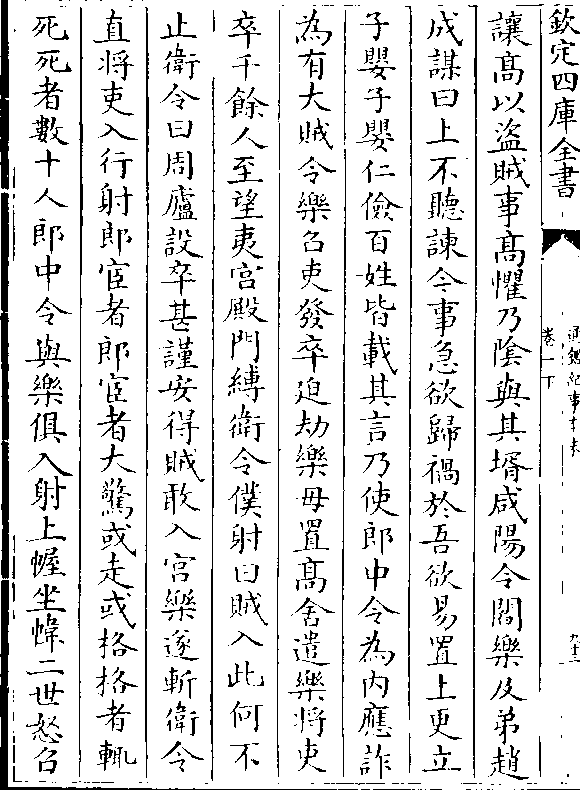 欽定四庫全書
通鑑紀事本末
卷一下
讓高以盜賊事高懼乃陰與其壻咸陽令閻樂及弟趙
成謀曰上不聽諫今事急欲歸禍於吾欲易置上更立
子嬰子嬰仁儉百姓皆載其言乃使郎中令為内應詐
為有大賊令樂召吏發卒追劫樂母置高舍遣樂將吏
卒千餘人至望夷宫殿門縛衛令僕射曰賊入此何不
止衛令曰周廬設卒甚謹安得賊敢入宫樂遂斬衛令
直將吏入行射郎宦者郎宦者大驚或走或格格者輒
死死者數十人郎中令與樂俱入射上幄坐幃二世怒召